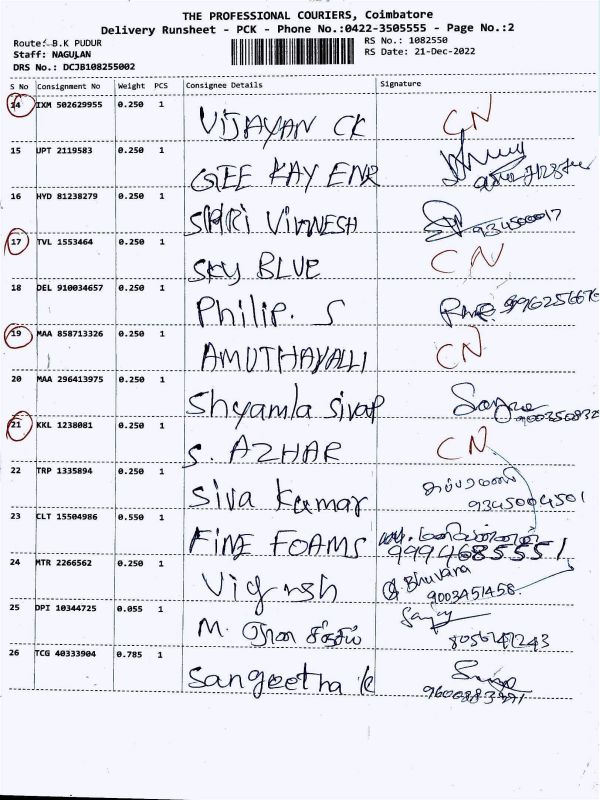 THE PROFESSIONAL COURIERS, Coimbatore
Delivery Runsheet - PCK - Phone No.:0422-3505555 - Page No.:2
Route: B.K PUDUR
RS No.: 1082550
Staff: NAGULAN
RS Date: 21-Dec-2022
DRS No.: DCJB108255002
S No Consignment No Weight PCS Consignee Details Signature
14 IXM 502629955 0.250 1 VIJAYAN CK CN
15 UPT 2119583 0.250 1 GEE KAY ENR
16 HYD 81238279 0.250 1 SHRI VIGNESH
17 TVL 1553464 0.250 1 SKY BLUE CN
18 DEL 910034657 0.250 1 Philip. S
19 MAA 858713326 0.250 1 AMUTHAVALLI CN
20 MAA 296413975 0.250 1 Shyamla
21 KKL 1238081 0.250 1 S. AZHAR CN
22 TRP 1335894 0.250 1 Siva Kumar 9345004501
23 CLT 15504986 0.550 1 FINE FOAMS 9994685551
24 MTR 2266562 0.250 1 Vignesh Bhuvana 9003451458
25 DPI 10344725 0.055 1 M. Sanjay 8056147243
26 TCG 40333904 0.785 1 Sangeetha K